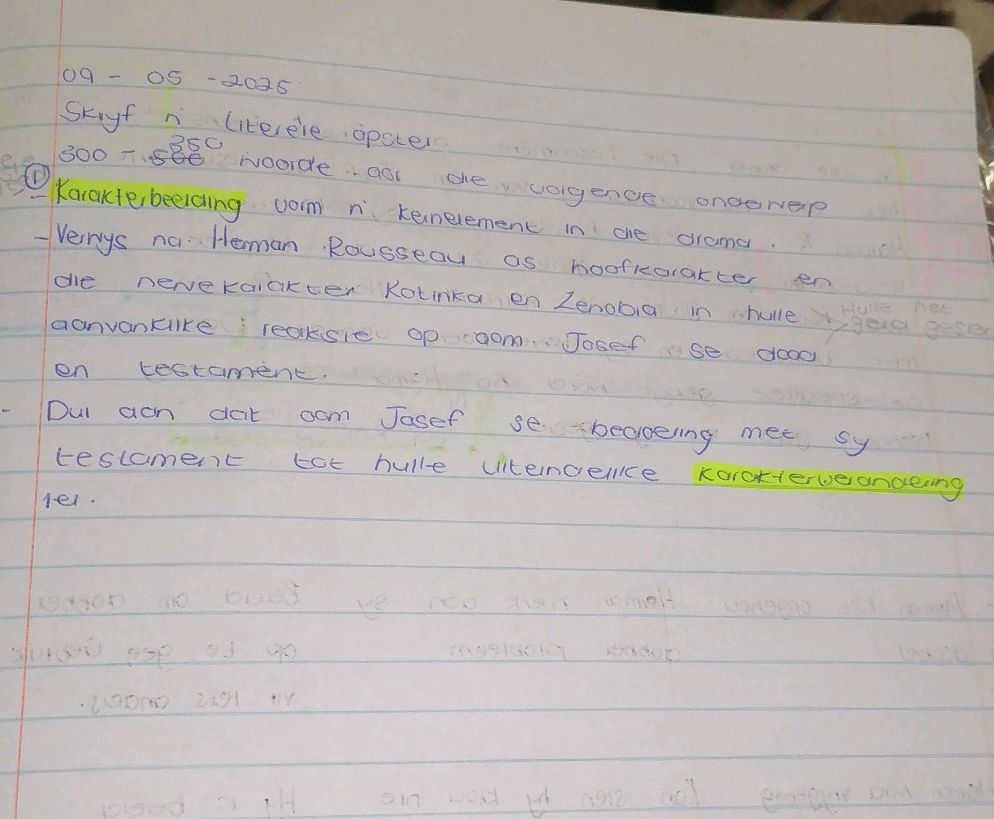 09 - 05 - 2025
Skryf n literêre opstel
300 - 350 woorde oor die volgende onderwerp
① Karakterbeelding vorm n' kernelement in die drama.
- Verwys na Herman Rousseau as hoofkarakter en
die newekarakter Katinka en Zenobia in hulle
aanvanklike reaksie op oom Josef se dood
en testament.
- Dui aan dat oom Josef se bedoeling met sy
testament tot hulle uiteindelike karakterverandering
lei.